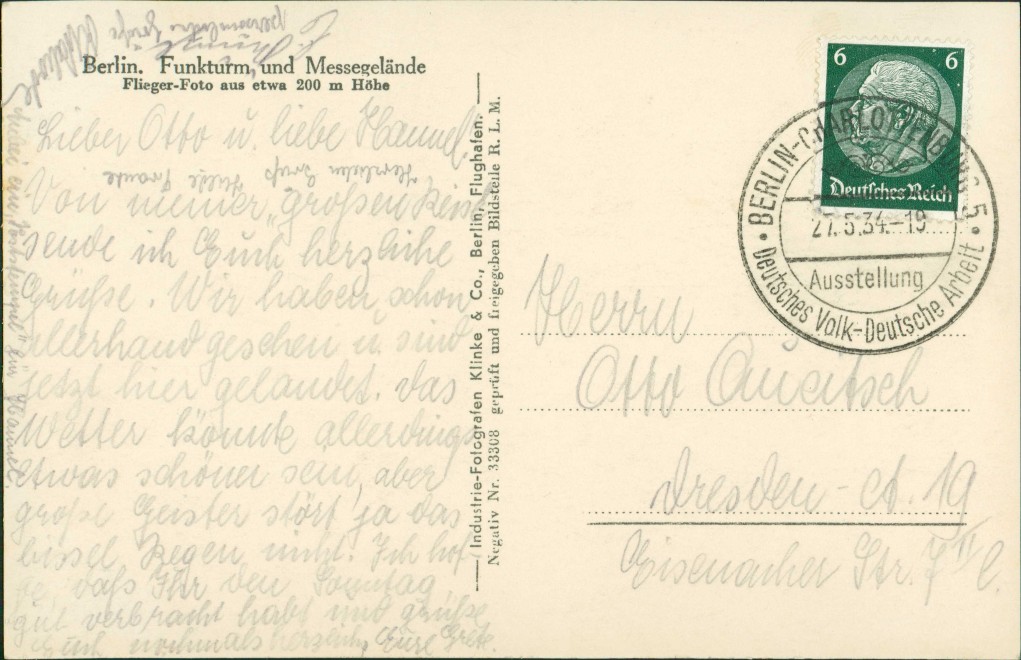 Berlin. Funkturm und Messegelände
Flieger-Foto aus etwa 200 m Höhe
Lieber Otto u. liebe Hannel.
Herzlichen Gruß
Von meiner „großen Reise
sende ich Euch herzliche
Grüße. Wir haben schon
allerhand gesehen u. sind
jetzt hier gelandet. Das
Wetter könnte allerdings
etwas schöner sein, aber
große Geister stört ja das
bissel Regen nicht. Ich hof
fe, daß Ihr den Sonntag
gut verbracht habt und grüße
Euch nochmals herzlich, Eure Grete.
Industrie-Fotografen Klinke & Co., Berlin, Flughafen.
Negativ Nr. 33308 geprüft und freigegeben Bildstelle R. L. M.
6 6
Deutsches Reich
BERLIN-CHARLOTTENBURG 5
27.5.34.-19
Ausstellung
Deutsches Volk-Deutsche Arbeit
Herrn
Otto
Dresden-A. 19
Eisenacher Str.